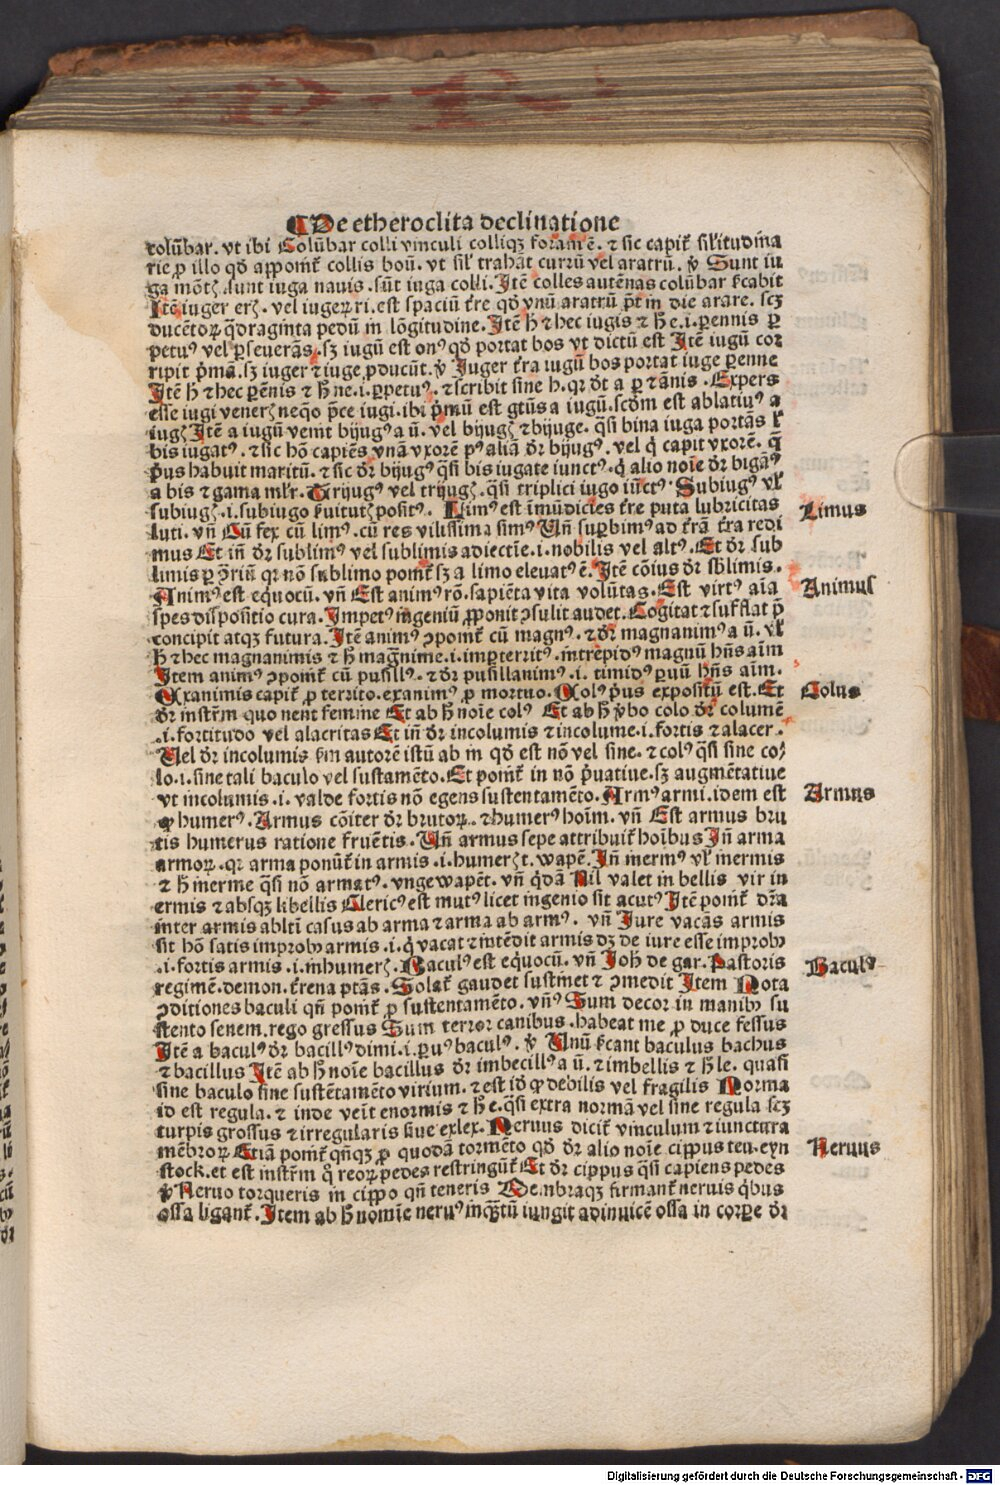 ¶ De etheroclita declinatione
colūbar. vt ibi Colūbar colli vinculi colliqꝫ foramē. ⁊ sic capit̃ silitudina
rie ꝓ illo qđ appomt̃ collis boū. vt sil' trahāt currū vel aratrū. ꝟ Sunt iu
ga mōtꝫ. sunt iuga nauis. sūt iuga colli. Itē colles autēnas colūbar
Itē iuger erꝫ. vel iugeꝝ ri. est spaciū t̃re qđ vnū aratrū p̄t in die arare. scꝫ
ducētoꝝ q̄draginta pedū in lōgitudine. Itē h̄ ⁊ hec iugis ⁊ h̄ e. i. ꝑennis ꝑ
petuꝰ vel ꝑseuerās. sꝫ iugū est onꝰ qđ portat bos vt dictū est Itē iugū cor
ripit p̄mā. sꝫ iuger ⁊ iuge ꝓducūt. ꝟ Iuger t̃ra iugū bos portat iuge ꝑenne
Itē h̄ ⁊ hec ꝑēnis ⁊ h̄ ne. i. ꝑpetuꝰ. ⁊ scribit sine h. qr dr̄t a ꝑ ⁊ ānis. Expers
esse iugi venerꝫ neqo p̄ce iugi. ibi p̄mū est gtūs a iugū. scđm est ablatiuꝰ a
iugꝫ Itē a iugū venit bijugꝰ a ū. vel bijugꝫ ⁊ bijuge. q̄si bina iuga portās
bis iugatꝰ. ⁊ sic hō capiēs vnā vxorē pꝰ aliā dr̄ bijugꝰ. vel q̇ capit vxorē. q̄
p̄us habuit maritū. ⁊ sic dr̄ bijugꝰ q̄si bis iugate iunctꝰ. q̇ alio noīe dr̄ bigāꝰ
a bis ⁊ gama ml'r. Trijugꝰ vel trijugꝫ. q̄si triplici iugo iūctꝰ Subiugꝰ vl'
subiugꝫ. i. subiugo positꝰ. Limꝰ est īmūdicies t̃re puta lubricitas
luti. vn̄ Cū fex cū limꝰ. cū res vilissima simꝰ Vn̄ suꝑbimꝰ ad t̃rā t̃ra redi
mus Et in̄ dr̄ sublimꝰ vel sublimis adiectīe. i. nobilis vel altꝰ. Et dr̄ sub
limis ꝑ qr nō sublimo pomt̃ sꝫ a limo eleuatꝰ ē. Itē cōius dr̄ sb'limis.
Animꝰ est equocū. vn̄ Est animꝰ rō. sapiēta vita volūtas. Est virtꝰ aīa
spes dispositio cura. Impetꝰ ingeniū ꝓponit ꝯsulit audet. Cogitat ⁊ sufflat p̄
concipit atqꝫ futura. Itē animꝰ ꝯpomt̃ cū magnꝰ. ⁊ dr̄ magnanimꝰ a ū. vl'
h̄ ⁊ hec magnanimis ⁊ h̄ magn̄nime. i. imꝑterritꝰ. intrepidꝰ magnū hn̄s aīm
Item animꝰ ꝯpomt̃ cū pusillꝰ. ⁊ dr̄ pusillanimꝰ. i. timidꝰ ꝑuū hn̄s aīm.
Exanimis capit̃ ꝓ territo. exanimꝰ ꝓ mortuo. Colꝰ p̄us expositū est. Et
dr̄ instr̄m quo nent femine Et ab h̄ noīe colꝰ Et ab h̄ ꝟbo colo dr̄ columē
. i. fortitudo vel alacritas Et in̄ dr̄ incolumis ⁊ incolume. i. fortis ⁊ alacer.
Vel dr̄ incolumis autorē istū ab in qđ est nō vel sine. ⁊ colꝰ q̄si sine co⸗
lo. i. sine tali baculo vel sustamēto. Et pomt̃ in nō p̄uatiue. sꝫ augmētatiue
vt incolumis. i. valde fortis nō egens sustentamēto. Armꝰ armi. idem est
ꝙ humerꝰ. Armus cōiter dr̄ brutoꝝ. ⁊ humerꝰ hoīm. vn̄ Est armus bru
tis humerus ratione fruētis. Vn̄ armus sepe attribuit̃ hoībus In̄ arma
armoꝝ. qr arma ponūt̃ in armis. i. humerꝫ t. wapē. In̄ inermꝰ vl' inermis
⁊ h̄ inerme q̄si nō armatꝰ. vngewapēt. vn̄ q̇dā Nil valet in bellis vir in
ermis ⁊ absqꝫ libellis Clericꝰ est mutꝰ licet ingenio sit acutꝰ Itē pomt̃ dr̄a
inter armis abltī casus ab arma ⁊ arma ab armꝰ. vn̄ Iure vacās armis
sit hō satis improbꝰ armis. i. q̇ vacat ⁊ intēdit armis dꝫ de iure esse improbꝰ
. i. fortis armis. i. in humerꝫ. Baculꝰ est equocū. vn̄ Joh̄ de gar. Pastoris
regimē. demon. t̃rena ptās. Solat̃ gaudet sustinet ⁊ ꝯmedit Item Nota
ꝯditiones baculi qn̄ pomt̃ ꝓ sustentamēto. vn̄ꝰ Sum decor in manibꝰ su
stento senem. rego gressus Sum terror canibus. habeat me ꝓ duce fessus
Itē a baculꝰ dr̄ bacillꝰ dimi. i. ꝑuꝰ baculꝰ. ꝟ Vnū baculus bachus
⁊ bacillus Itē ab h̄ noīe bacillus dr̄ imbecillꝰ a ū. ⁊ imbellis ⁊ h̄ le. quasi
sine baculo sine sustētamēto virium. ⁊ est iđ ꝙ debilis vel fragilis Norma
id est regula. ⁊ inde venit enormis ⁊ h̄ e. q̄si extra normā vel sine regula scꝫ
turpis grossus ⁊ irregularis siue exlex. Neruus dicit̃ vinculum ⁊ iunctura
mēbroꝝ Etiā pomt̃ qn̄qꝫ ꝓ quodā tormēto qđ dr̄ alio noīe cippus teu. eyn
stock. et est instr̄m q̊ reoꝝ pedes restringūt̃ Et dr̄ cippus q̄si capiens pedes
ꝟ Neruo torqueris in cippo qn̄ teneris Membraqꝫ firmant̃ neruis q̇bus
ossa ligant̃. Item ab h̄ nomīe neruꝰ inq̄ꝫtū iungit adinuicē ossa in corꝑe dr̄
Limus
Animus
Colus
Armus
Baculꝰ
Neruus
Digitalisierung gefördert durch die Deutsche Forschungsgemeinschaft - DFG